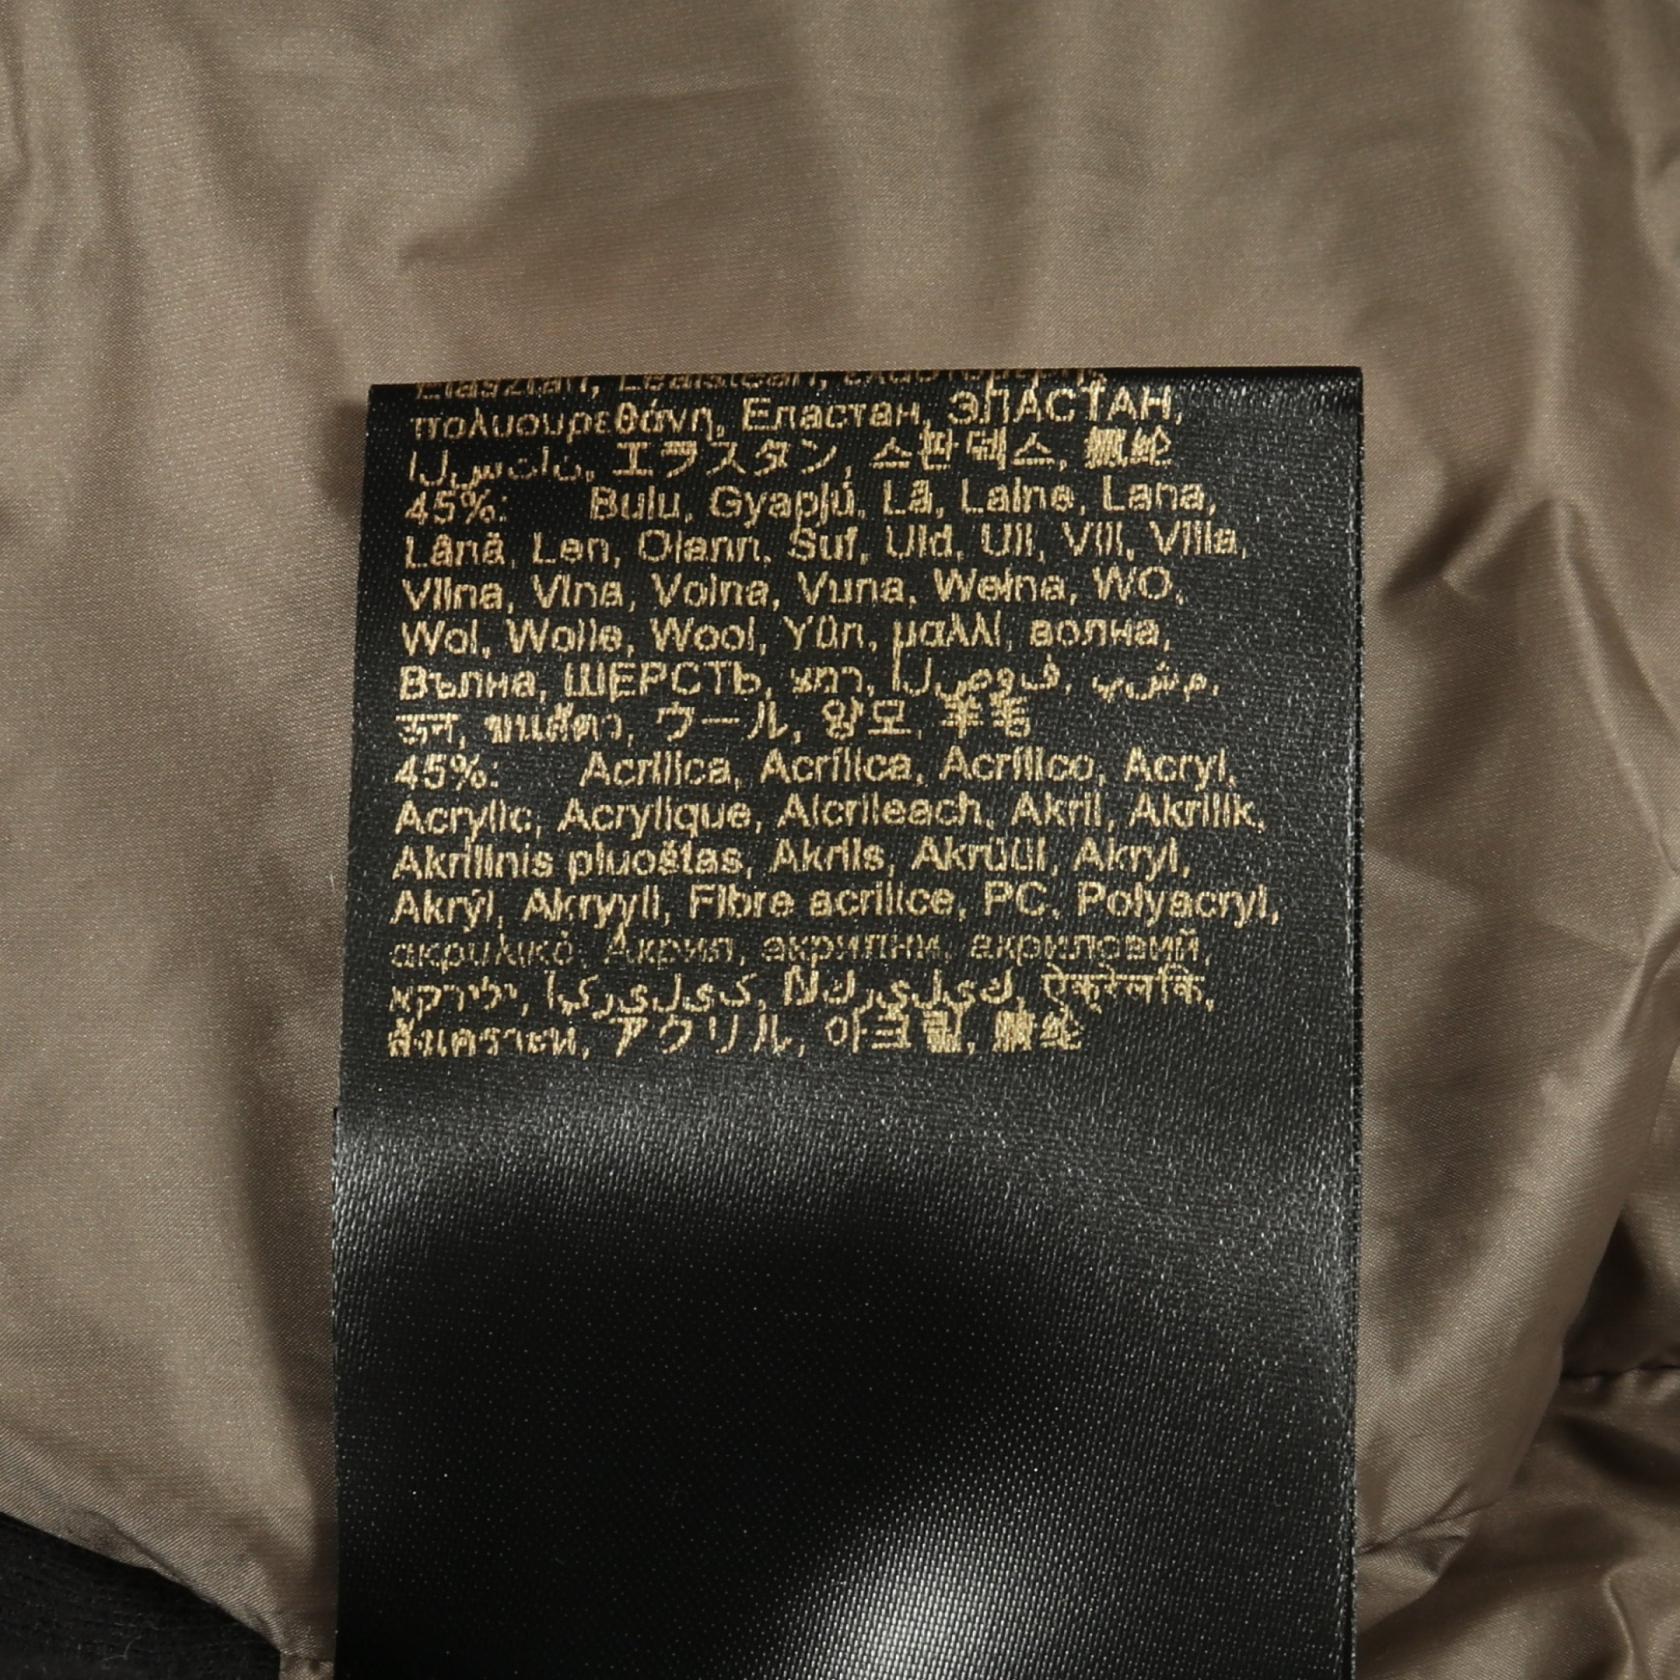 Elasztán, Leaisteán, ελαστομερής
πολυουρεθάνη, Еластан, ЭЛАСТАН,
السبتان, エラスタン, 스판덱스, 氨纶
45%: Bulu, Gyapjú, Lã, Laine, Lana,
Lână, Len, Olann, Suf, Uld, Ull, Vill, Villa,
Vilna, Vlna, Volna, Vuna, Wełna, WO,
Wol, Wolle, Wool, Yün, μαλλί, волна,
Вълна, ШЕРСТЬ, צמר, الصوف, پشم,
ऊन, ขนสัตว์, ウール, 양모, 羊毛
45%: Acrílica, Acrílica, Acrílico, Acryl,
Acrylic, Acrylique, Aicrileach, Akril, Akrilik,
Akrilinis pluoštas, Akrils, Akrüül, Akryl,
Akrýl, Akryyli, Fibre acrilice, PC, Polyacryl,
ακρυλικό, Акрил, акрилни, акриловий,
אקרילי, اکریلیک, ऐक्रेलिक,
アクリル, 아크릴, 腈纶